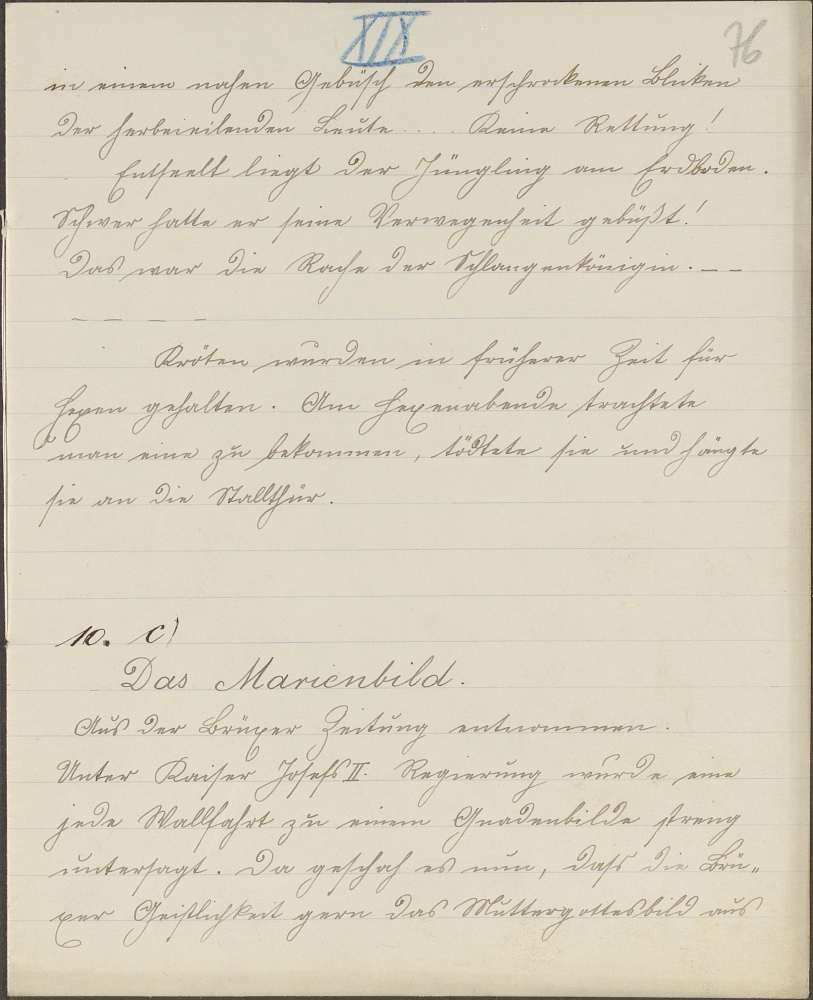 XIX
76
in einem nahen Gebüsch den erschrockenen Blicken
der herbeieilenden Leute.... Keine Rettung!
Entseelt liegt der Jüngling am Erdboden.
Schwer hatte er seine Verwegenheit gebüßt!
Das war die Rache der Schlangenkönigin. – –
– – – –
Kröten wurden in früherer Zeit für
Hexen gehalten. Am Hexenabende trachtete
man eine zu bekommen, tödtete sie und hängte
sie an die Stallthür.
10. c)
Das Marienbild.
Aus der Brüxer Zeitung entnommen.
Unter Kaiser Josefs II. Regierung wurde eine
jede Wallfahrt zu einem Gnadenbilde streng
untersagt. Da geschah es nun, daſs die Brü-
xer Geistlichkeit gern das Muttergottesbild aus